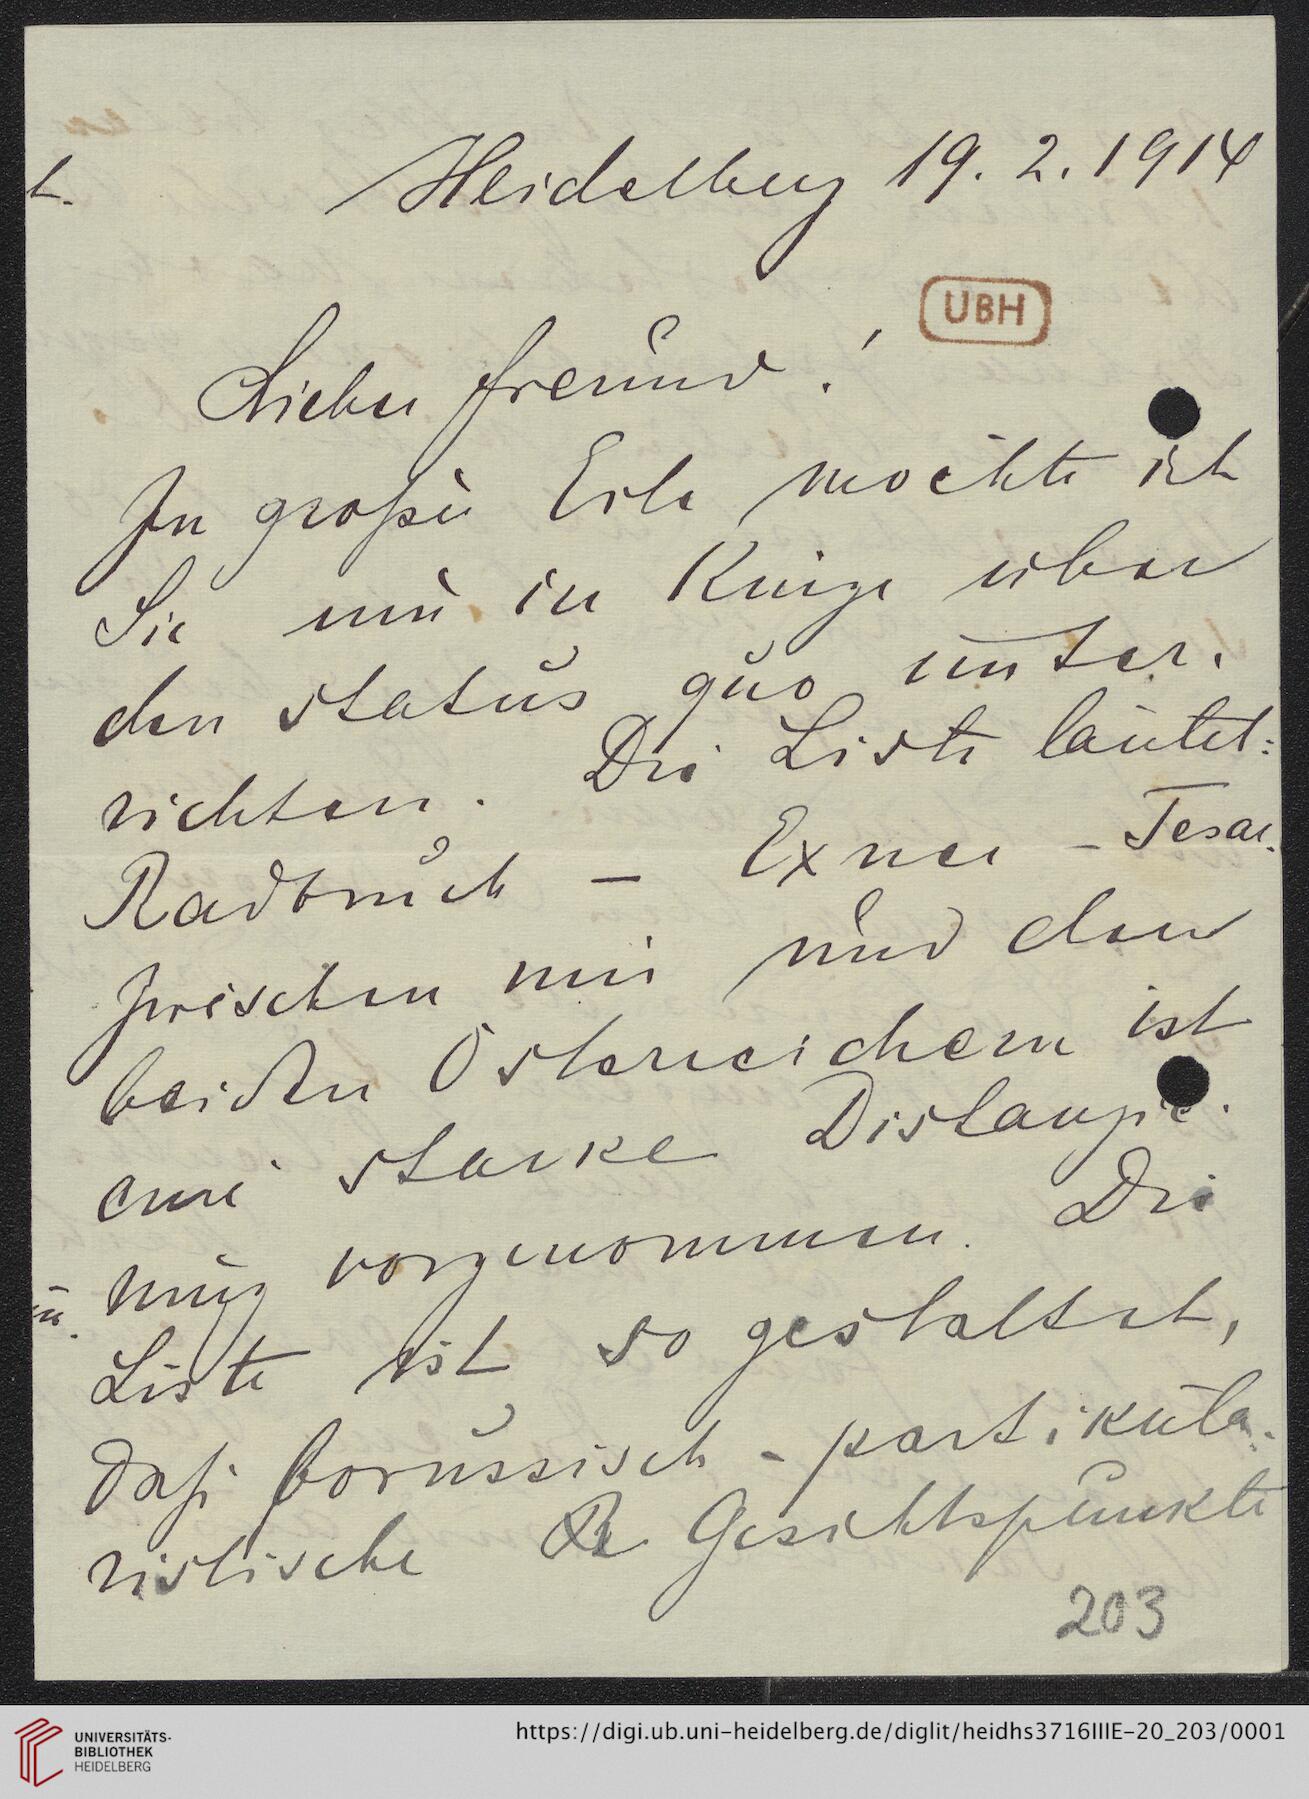 t.
Heidelberg 19. 2. 1914
UBH
Lieber Freund!
In großer Eile möchte ich
Sie nur in Kürze über
den status quo unter-
richten. Die Liste lautet:
Radbruch – Exner – Tesar.
Zwischen mir und den
beiden Österreichern ist
eine starke Distanzie-
rung vorgenommen. Die
Liste ist so gestaltet,
daß borussisch-partikula-
ristische Gesichtspunkte
203
UNIVERSITÄTS-
BIBLIOTHEK
HEIDELBERG
https://digi.ub.uni-heidelberg.de/diglit/heidhs3716IIIE-20_203/0001